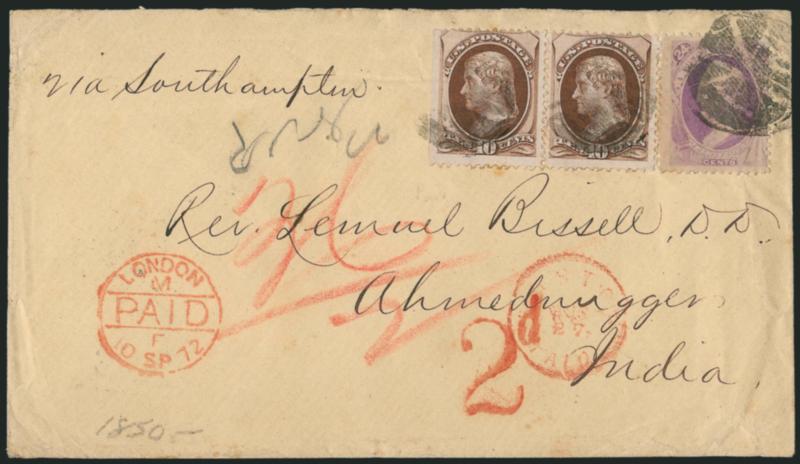 via Southampton.
U.S. POSTAGE
10
U.S. POSTAGE
10
24
CENTS
Rev. Lemuel Bissell, D.D.
Ahmednugger
India.
LONDON
M
PAID
F
10 SP 72
27
2
1850-